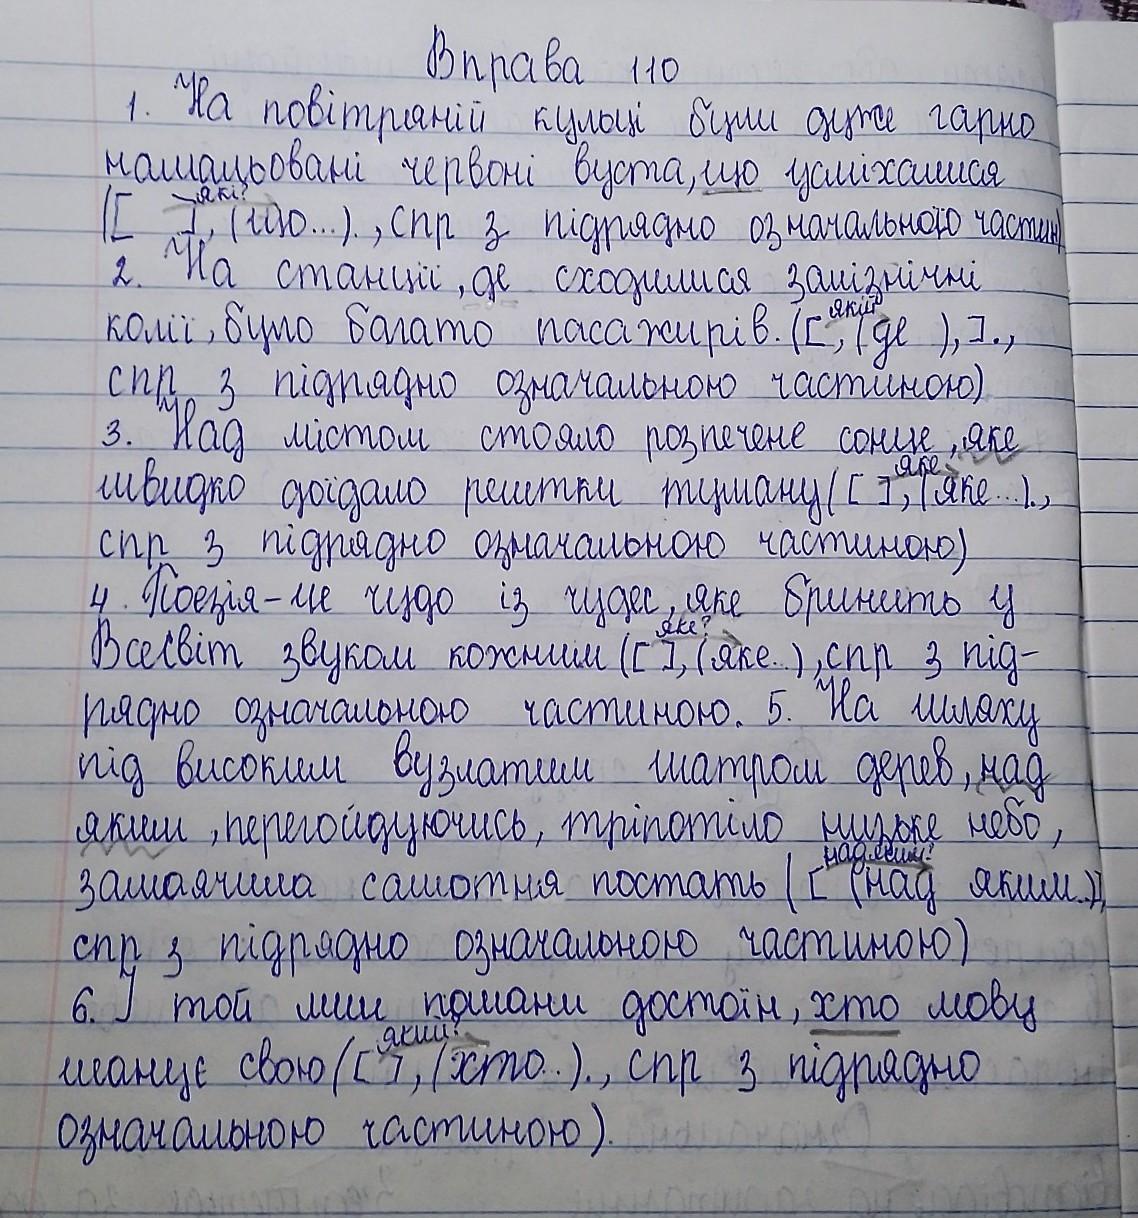 Вправа 110
1. На повітряній кульці були дуже гарно
намальовані червоні вуста, що усміхалися
([ ], які? (що...)., спр з підрядно означального частин)
2. На станції, де сходилися залізничні
колії, було багато пасажирів. ([, якій (де ), ].,
спр з підрядно означальною частиною)
3. Над містом стояло розпечене сонце, яке
швидко доїдало рештки туману ([ ], яке (яке...).,
спр з підрядно означальною частиною)
4. Поезія – це чудо із чудес, яке бринить у
Всесвіт звуком кожним ([ ], яке? (яке..), спр з під-
рядно означальною частиною. 5. На шляху
під високим вузлатим шатром дерев, над
яким, перегойдуючись, тріпотіло низьке небо,
замаячила самотня постать ([ над яким? (над яким..)],
спр з підрядно означальною частиною)
6. І той лиш пошани достоїн, хто мову
шанує свою ([ ], який? (хто..)., спр з підрядно
означальною частиною).